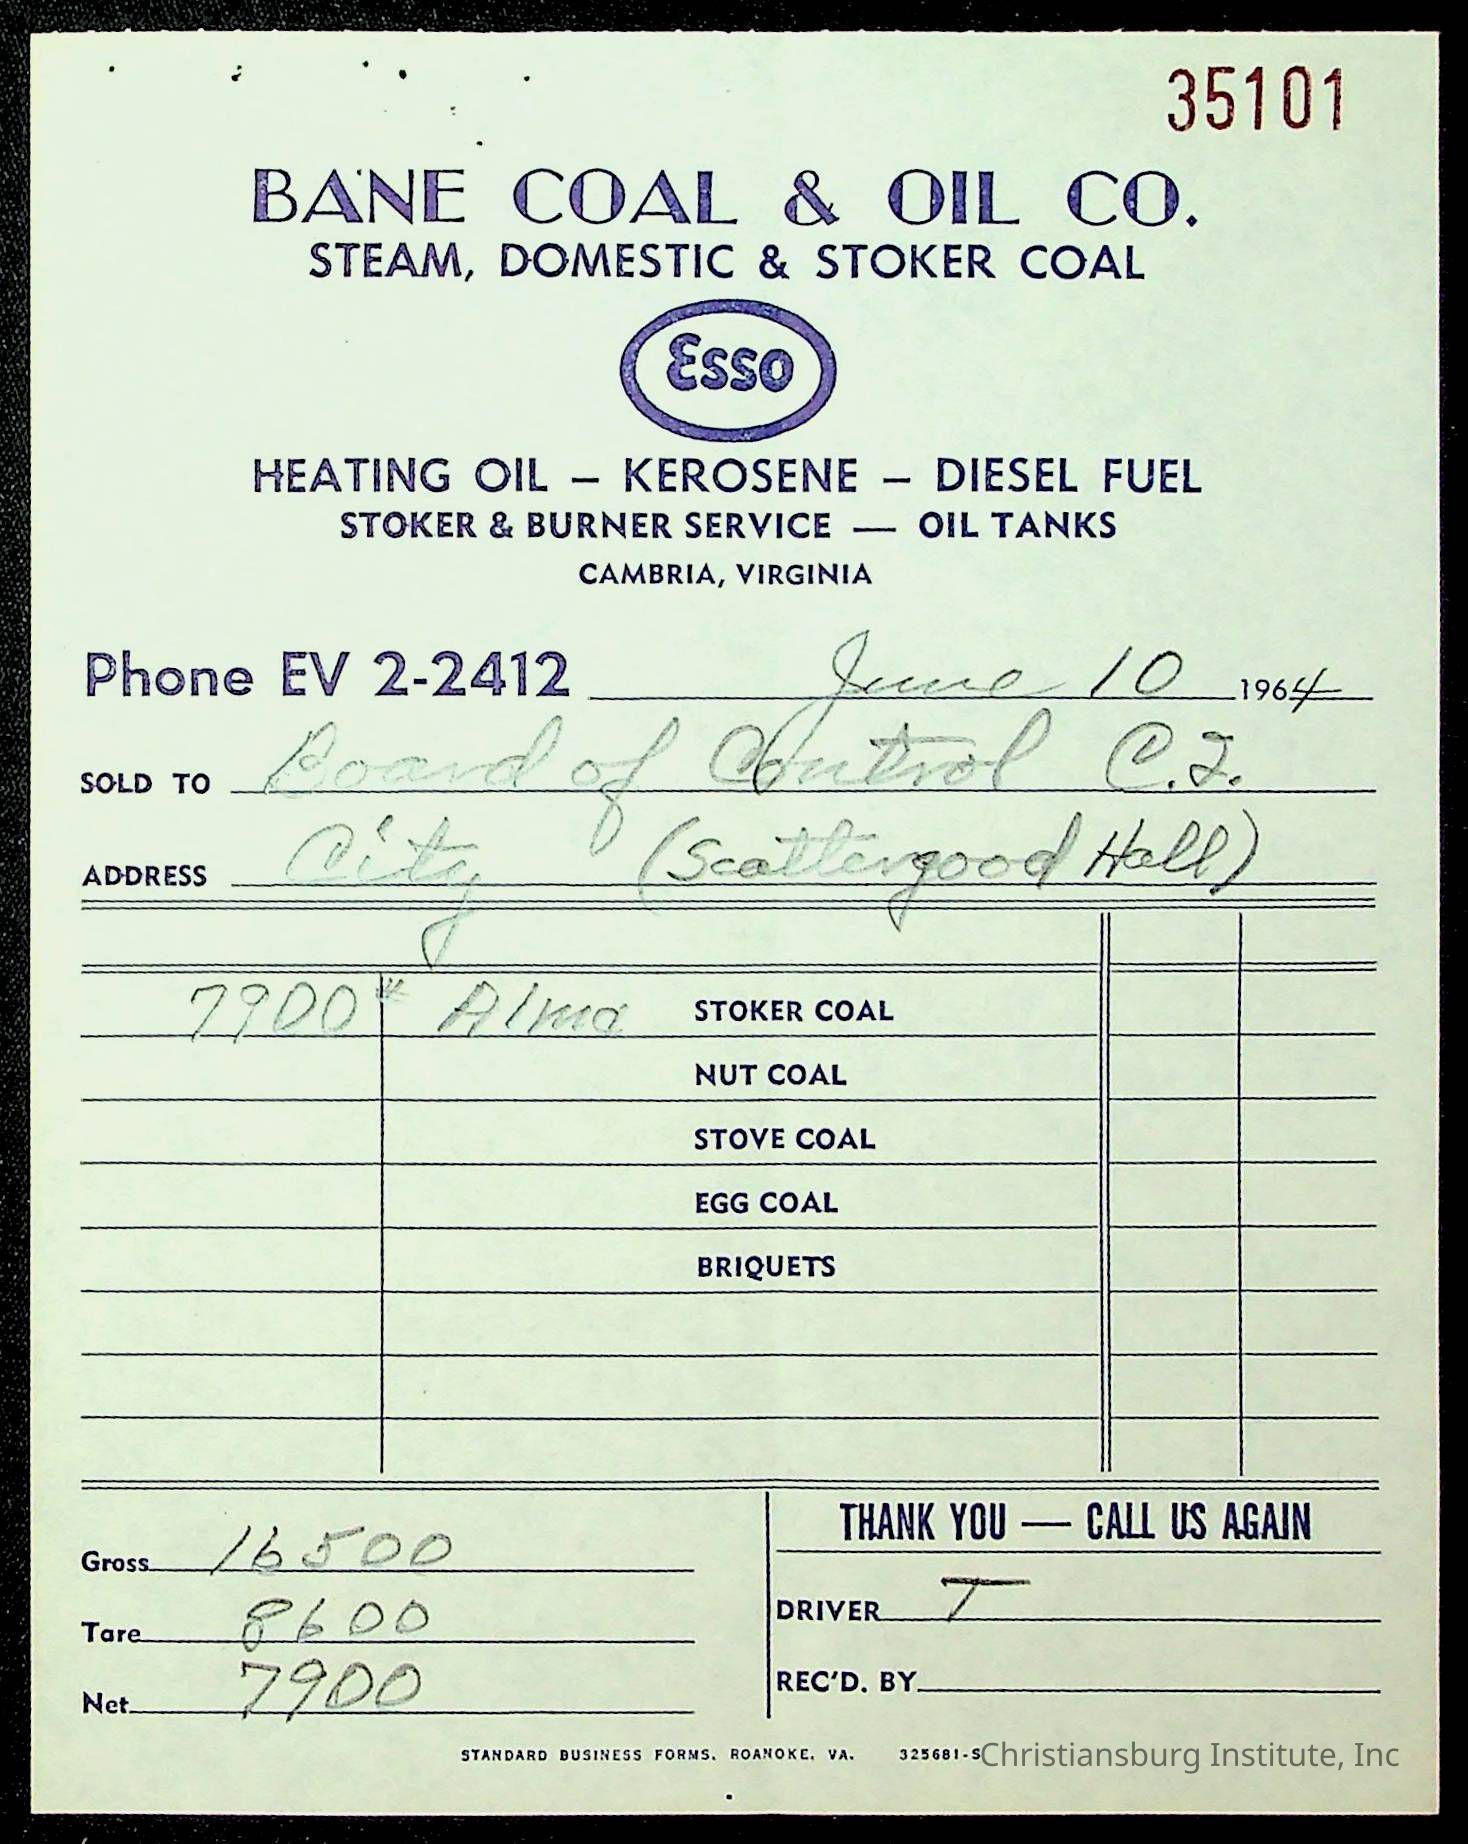 35101
BANE COAL & OIL CO.
STEAM, DOMESTIC & STOKER COAL
Esso
HEATING OIL – KEROSENE – DIESEL FUEL
STOKER & BURNER SERVICE — OIL TANKS
CAMBRIA, VIRGINIA
Phone EV 2-2412 June 10 1964
SOLD TO Board of Control C.I.
ADDRESS City (Scattergood Hall)
7900# Alma STOKER COAL
NUT COAL
STOVE COAL
EGG COAL
BRIQUETS
THANK YOU — CALL US AGAIN
Gross 16500
DRIVER T
Tare 8600
REC'D. BY
Net 7900
STANDARD BUSINESS FORMS, ROANOKE, VA. 325681-S
Christiansburg Institute, Inc